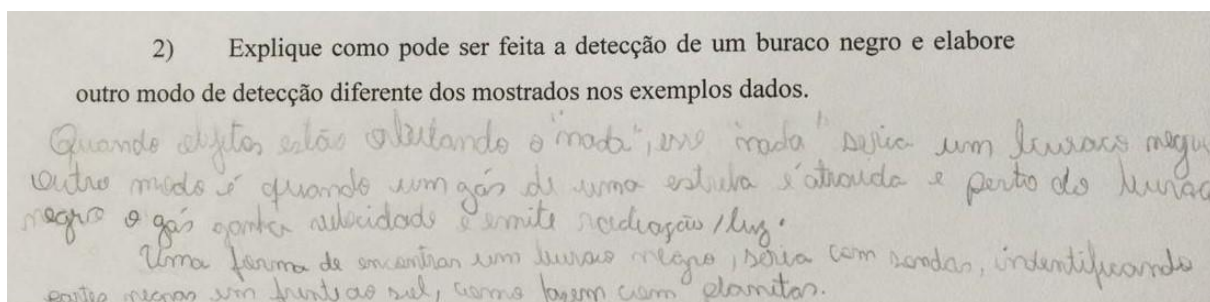 2) Explique como pode ser feita a detecção de um buraco negro e elabore
outro modo de detecção diferente dos mostrados nos exemplos dados.
Quando objetos estão orbitando o "nada", esse "nada" seria um buraco negro
Outro modo é quando um gás de uma estrela é atraida e perto do buraco
negro o gás ganha velocidade e emite radiação/luz.
Uma forma de encontrar um buraco negro, séria com sondas, indentificando
partes negras em frente ao sol, como fazem com planetas.